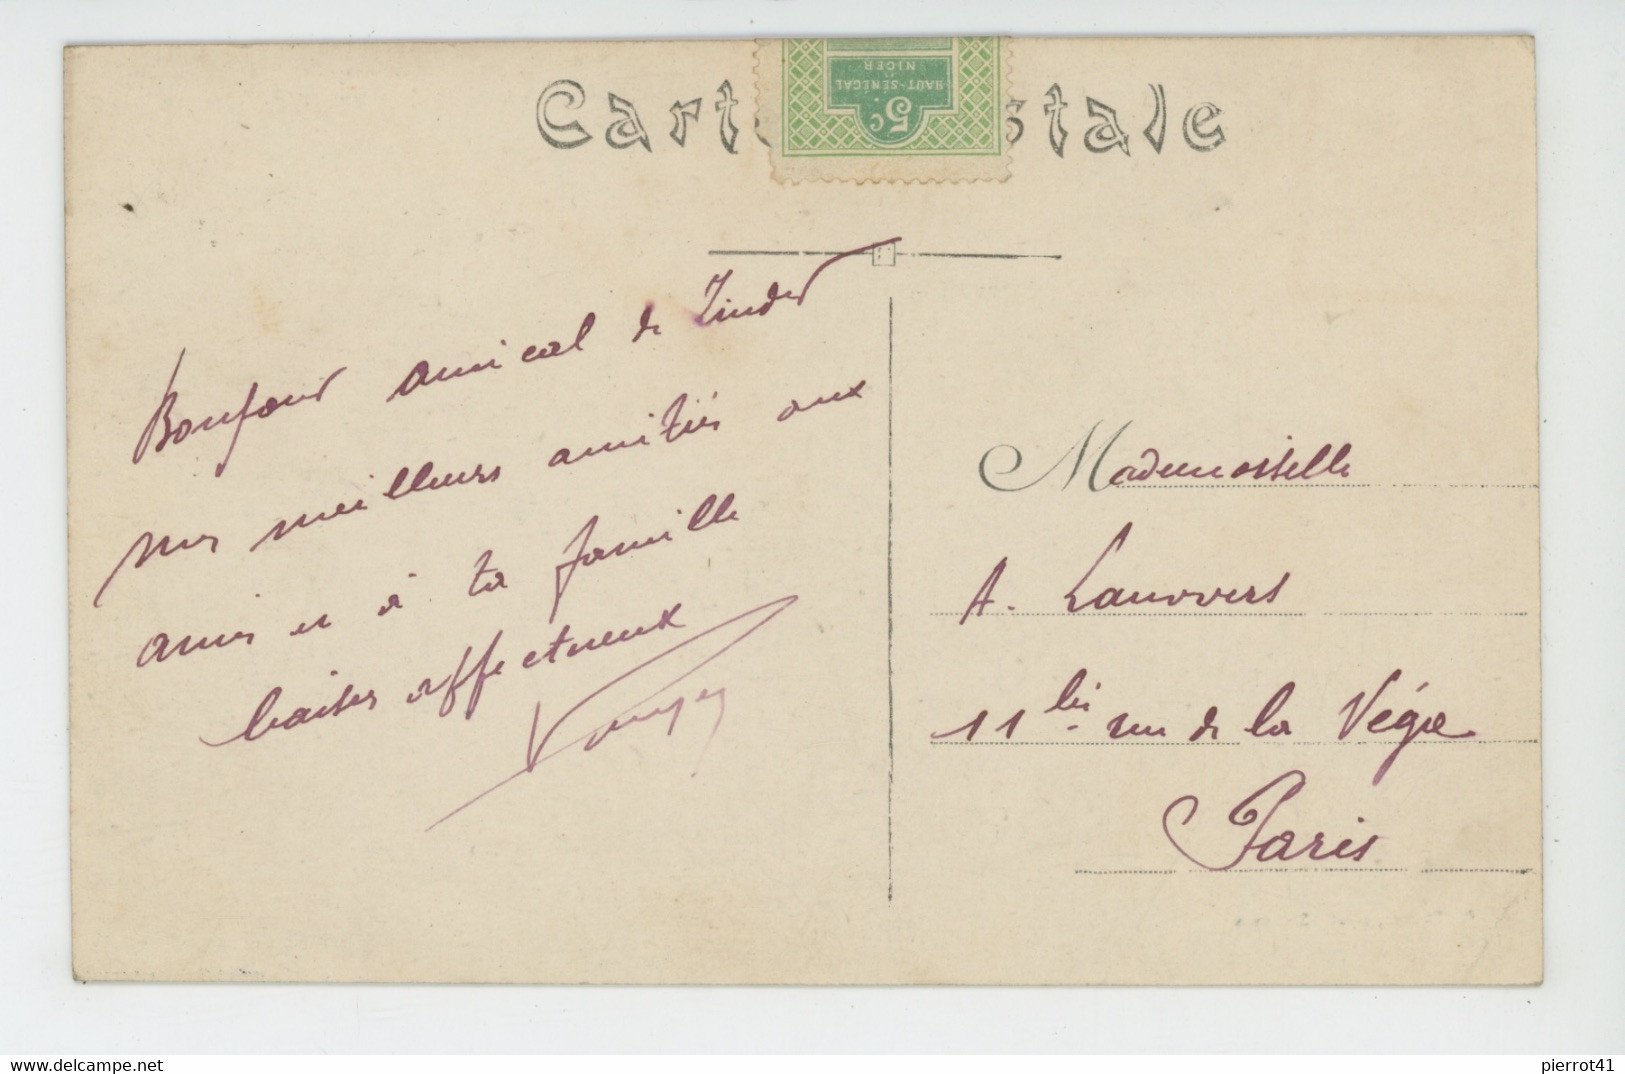 Carte Postale
HAUT-SÉNÉGAL
NIGER
5c.
Bonjour amical de Zinder
mes meilleurs amitiés aux
amis et à ta famille
baisers affectueux
Mademoiselle
A. Lanvvers
11 bis rue de la Véga
Paris
pierrot41